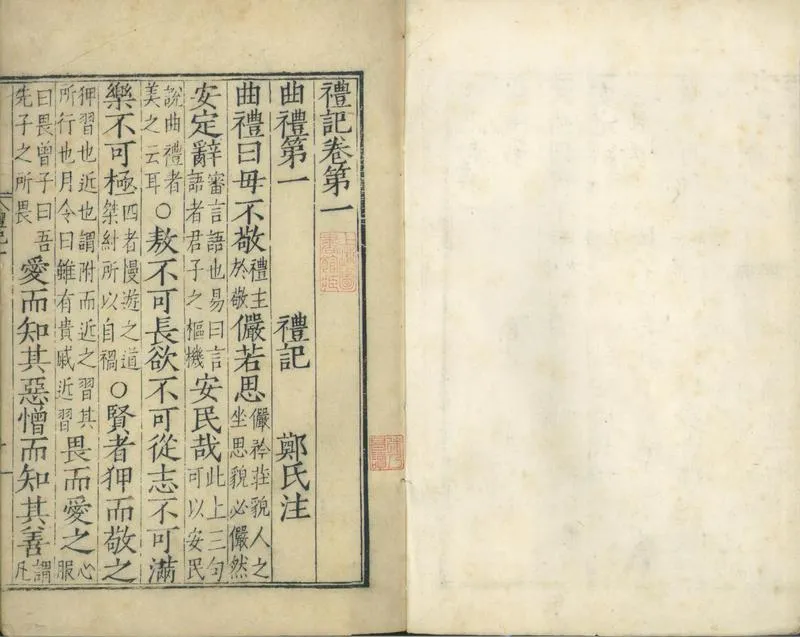 禮記卷第一
曲禮第一 禮記 鄭氏注
曲禮曰毋不敬禮主於敬儼若思儼矜莊貌人之坐思貌必儼然
安定辭審言語也易曰言語者君子之樞機安民哉此上三句可以安民
說曲禮者美之云耳○敖不可長欲不可從志不可滿
樂不可極四者慢遊之道桀紂所以自禍○賢者狎而敬之
狎習也近也謂附而近之習其所行也月令曰雖有貴戚近習畏而愛之心服
曰畏曾子曰吾先子之所畏愛而知其惡憎而知其善謂凡